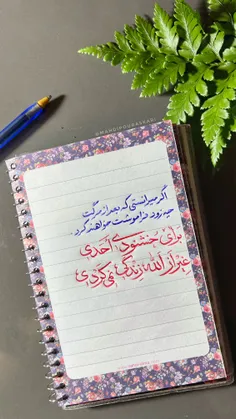 @MAHDIPOURASKARI
اگر میدانستی که بعد از مرگت
چه زود فراموشت خواهند کرد.
برای خشنودی احدی
غیر از الله زندگی نمی‌کردی